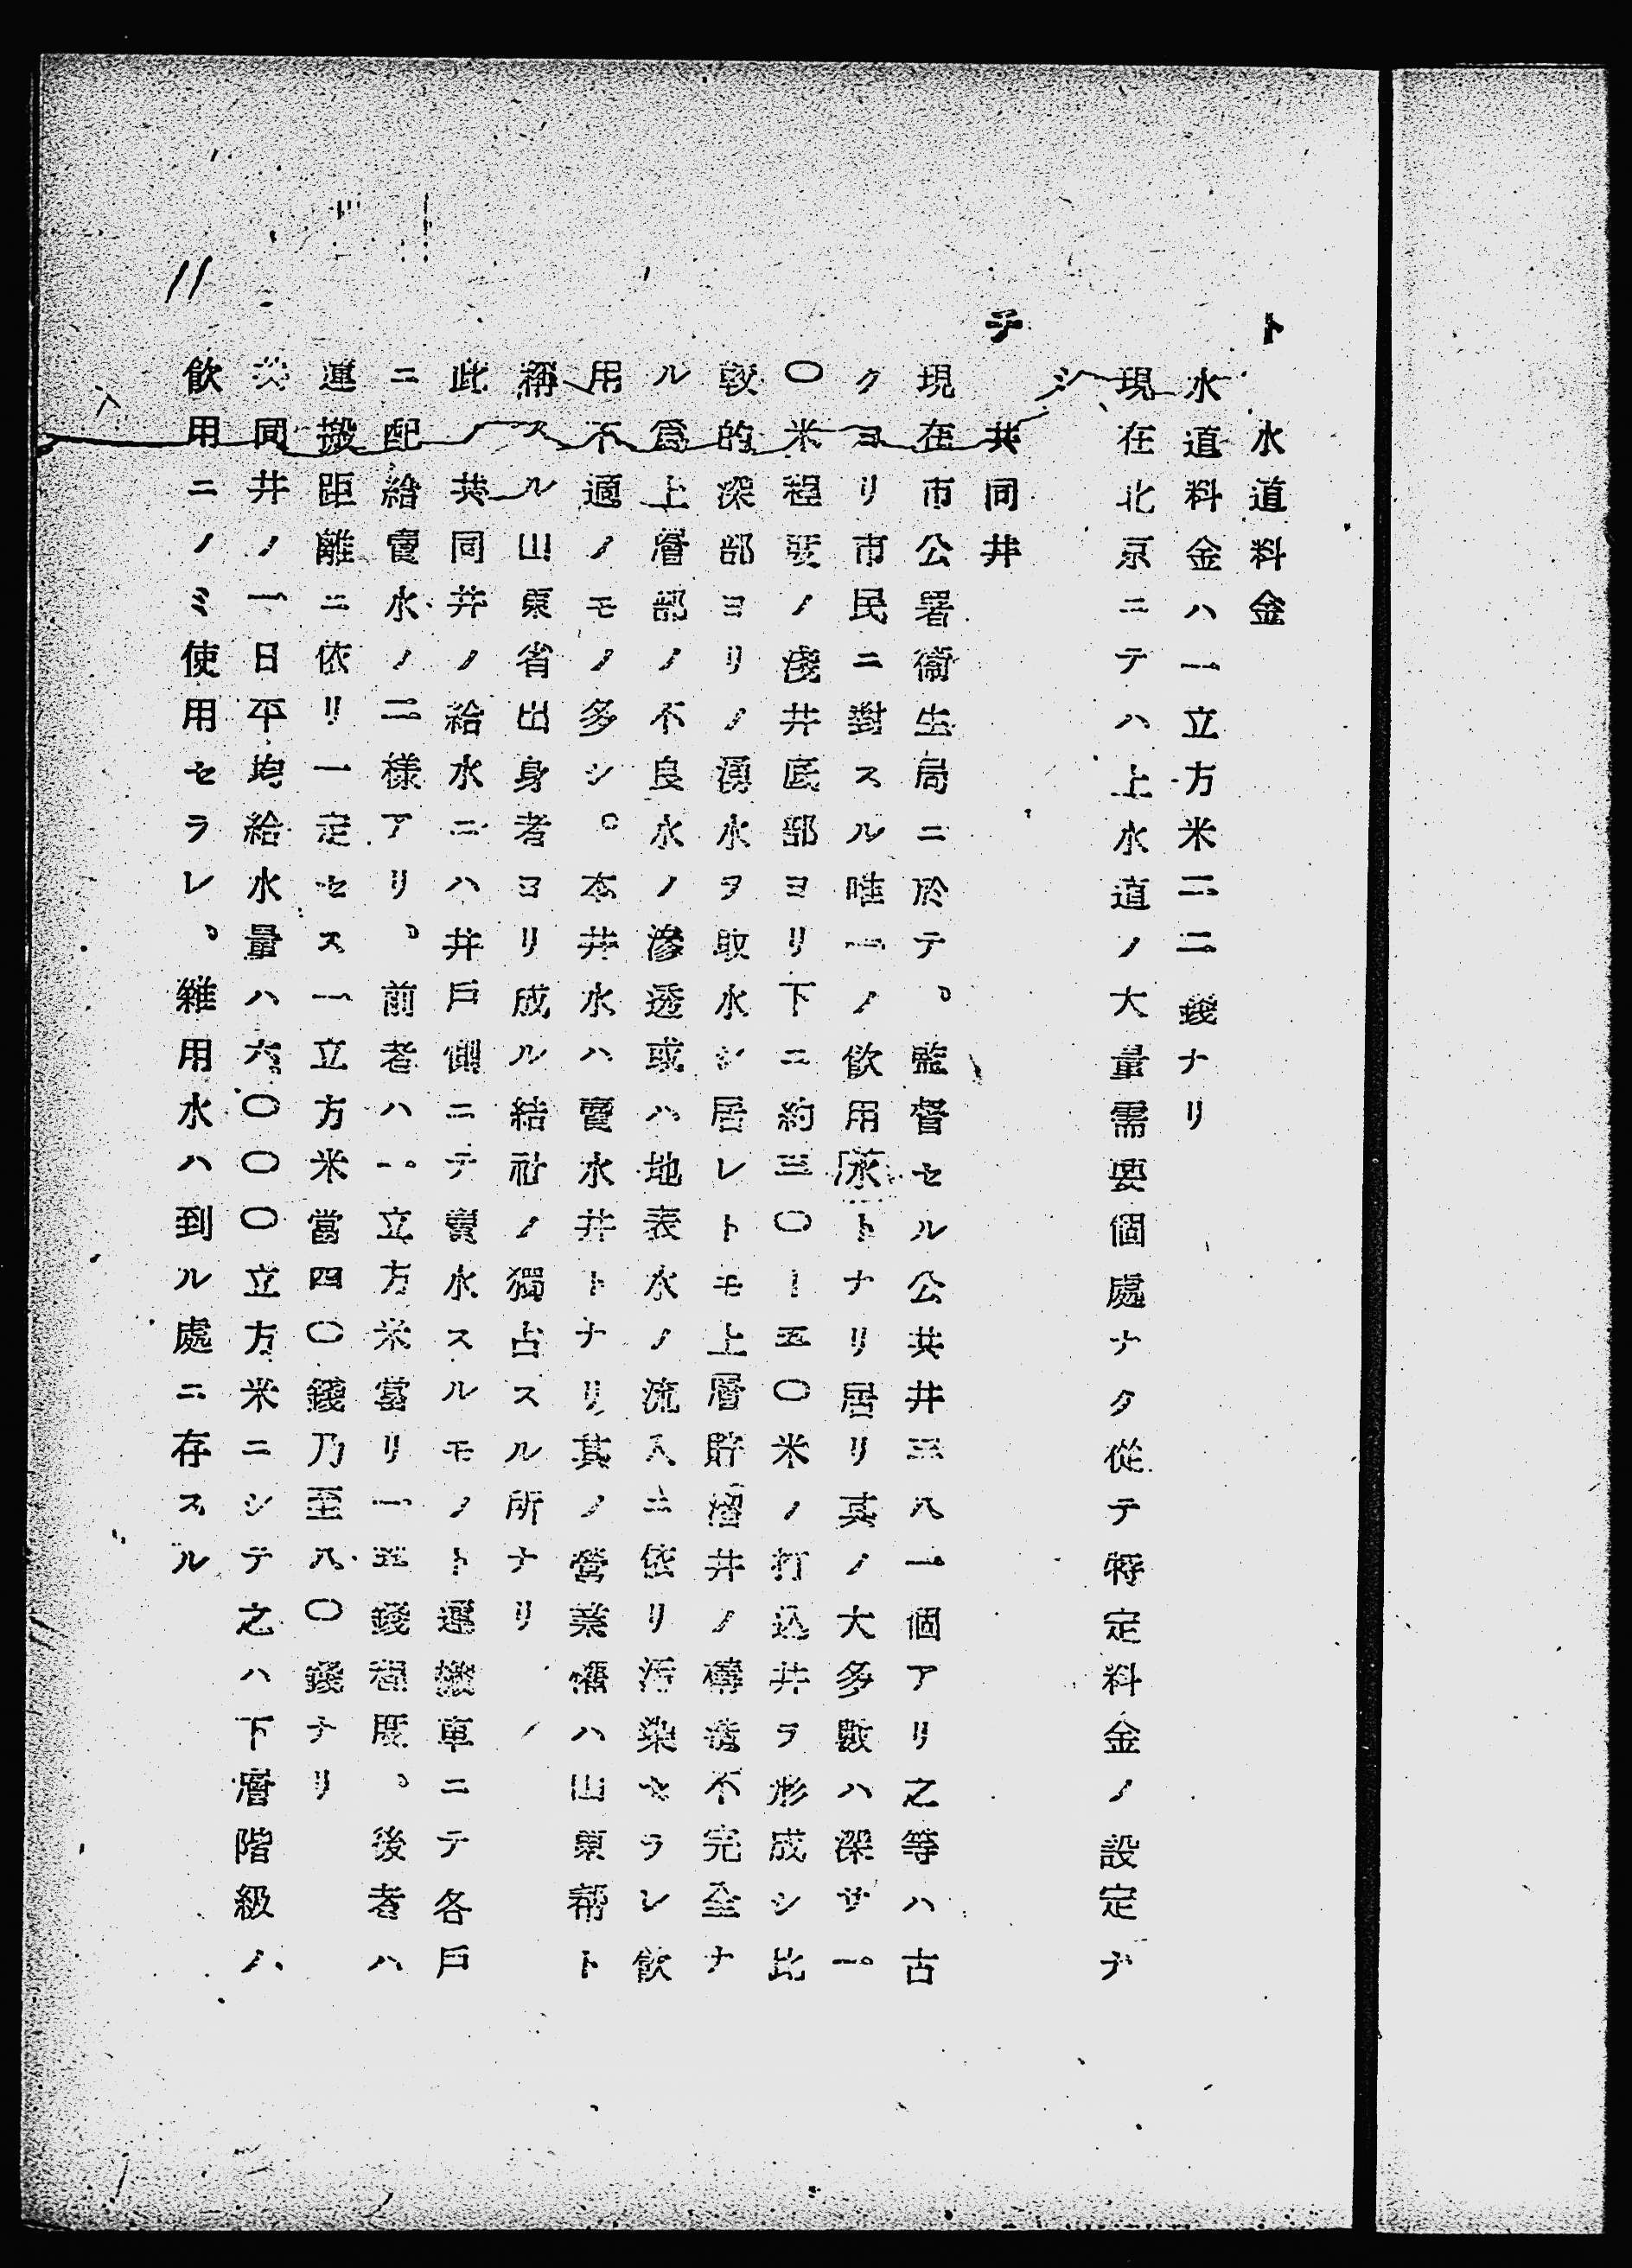 ト 水道料金
水道料金ハ一立方米二二錢ナリ
現在北京ニテハ上水道ノ大量需要個處ナク從テ特定料金ノ設定ナ
シ
チ 共同井
現在市公署衞生局ニ於テ、監督セル公共井三八一個アリ之等ハ古
クヨリ市民ニ對スル唯一ノ飮用水トナリ居リ其ノ大多數ハ深サ一。
〇米程度ノ淺井底部ヨリ下ニ約三〇ー五〇米ノ打込井ヲ形成シ比
較的深部ヨリノ湧水ヲ取水シ居レトモ上層貯溜井ノ構造不完全ナ
ル爲上層部ノ不良水ノ滲透或ハ地表水ノ流入ニ依リ汚染セラレ飮
用不適ノモノ多シ。本井水ハ賣水井トナリ其ノ營業權ハ山東幇ト
稱スル山東省出身者ヨリ成ル結社ノ獨占スル所ナリ
此ノ共同井ノ給水ニハ井戶側ニテ賣水スルモノト運搬車ニテ各戶
ニ配給賣水ノ二樣アリ、前者ハ一立方米當リ一五錢程度。後者ハ
運搬距離ニ依リ一定セス一立方米當四〇錢乃至八〇錢ナリ
共同井ノ一日平均給水量ハ六、〇〇〇立方米ニシテ之ハ下層階級ノ
飮用ニノミ使用セラレ、雜用水ハ到ル處ニ存スル
11